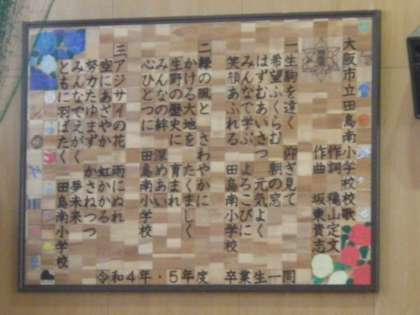 大阪市立田島南小学校校歌
作詞 福山定文
作曲 坂東貴志
一 生駒を遠く 仰ぎ見て
希望ふくらむ 朝の窓
はずむあいさつ 元気よく
みんなで学ぶ よろこびに
笑顔あふれる 田島南小学校
二 緑の風と さわやかに
かける大地を たくましく
生野の歴史に 育まれ
みんなの絆 深めあい
心ひとつに 田島南小学校
三 アジサイの花 雨にぬれ
空にあざやか 虹かかる
努力たゆまず かさねつつ
みんなでえがく 夢未来
ともに羽ばたく 田島南小学校
令和4年・5年度 卒業生一同